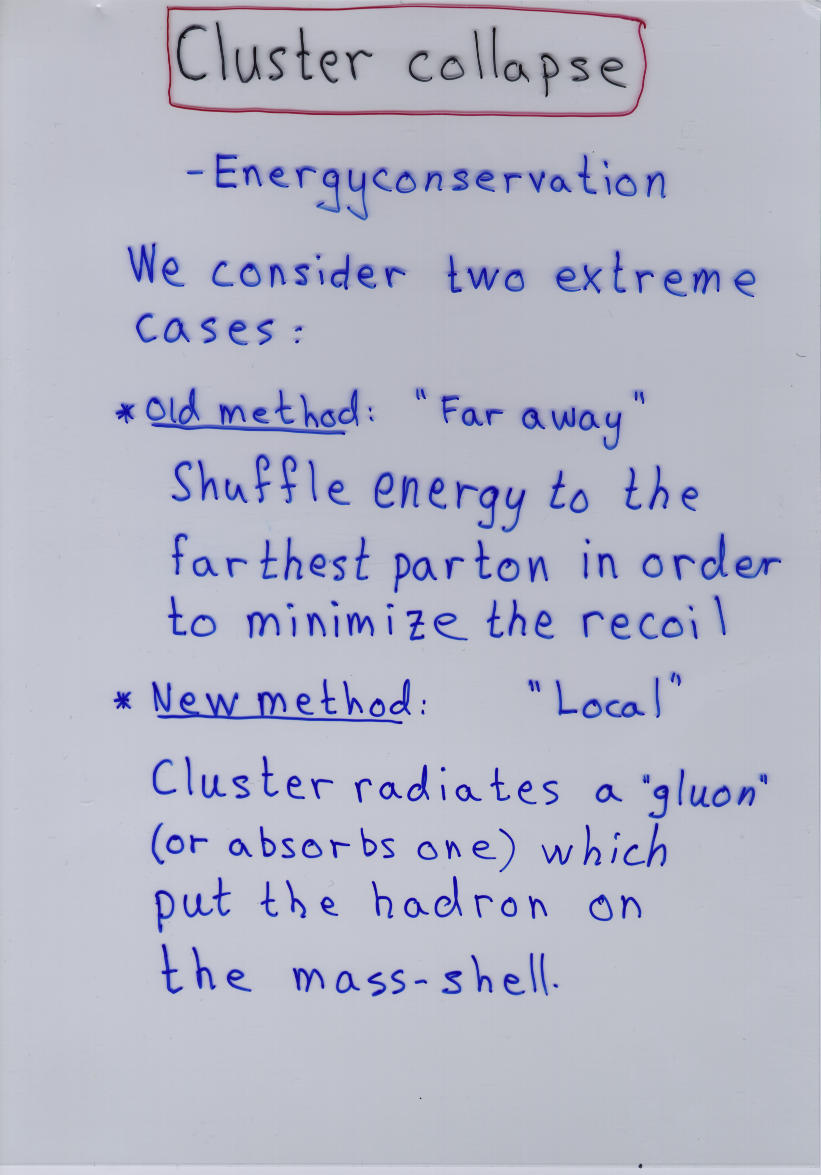 Cluster collapse
-Energyconservation
We consider two extreme
cases:
* Old method: "Far away"
Shuffle energy to the
farthest parton in order
to minimize the recoil
* New method: "Local"
Cluster radiates a "gluon"
(or absorbs one) which
put the hadron on
the mass-shell.